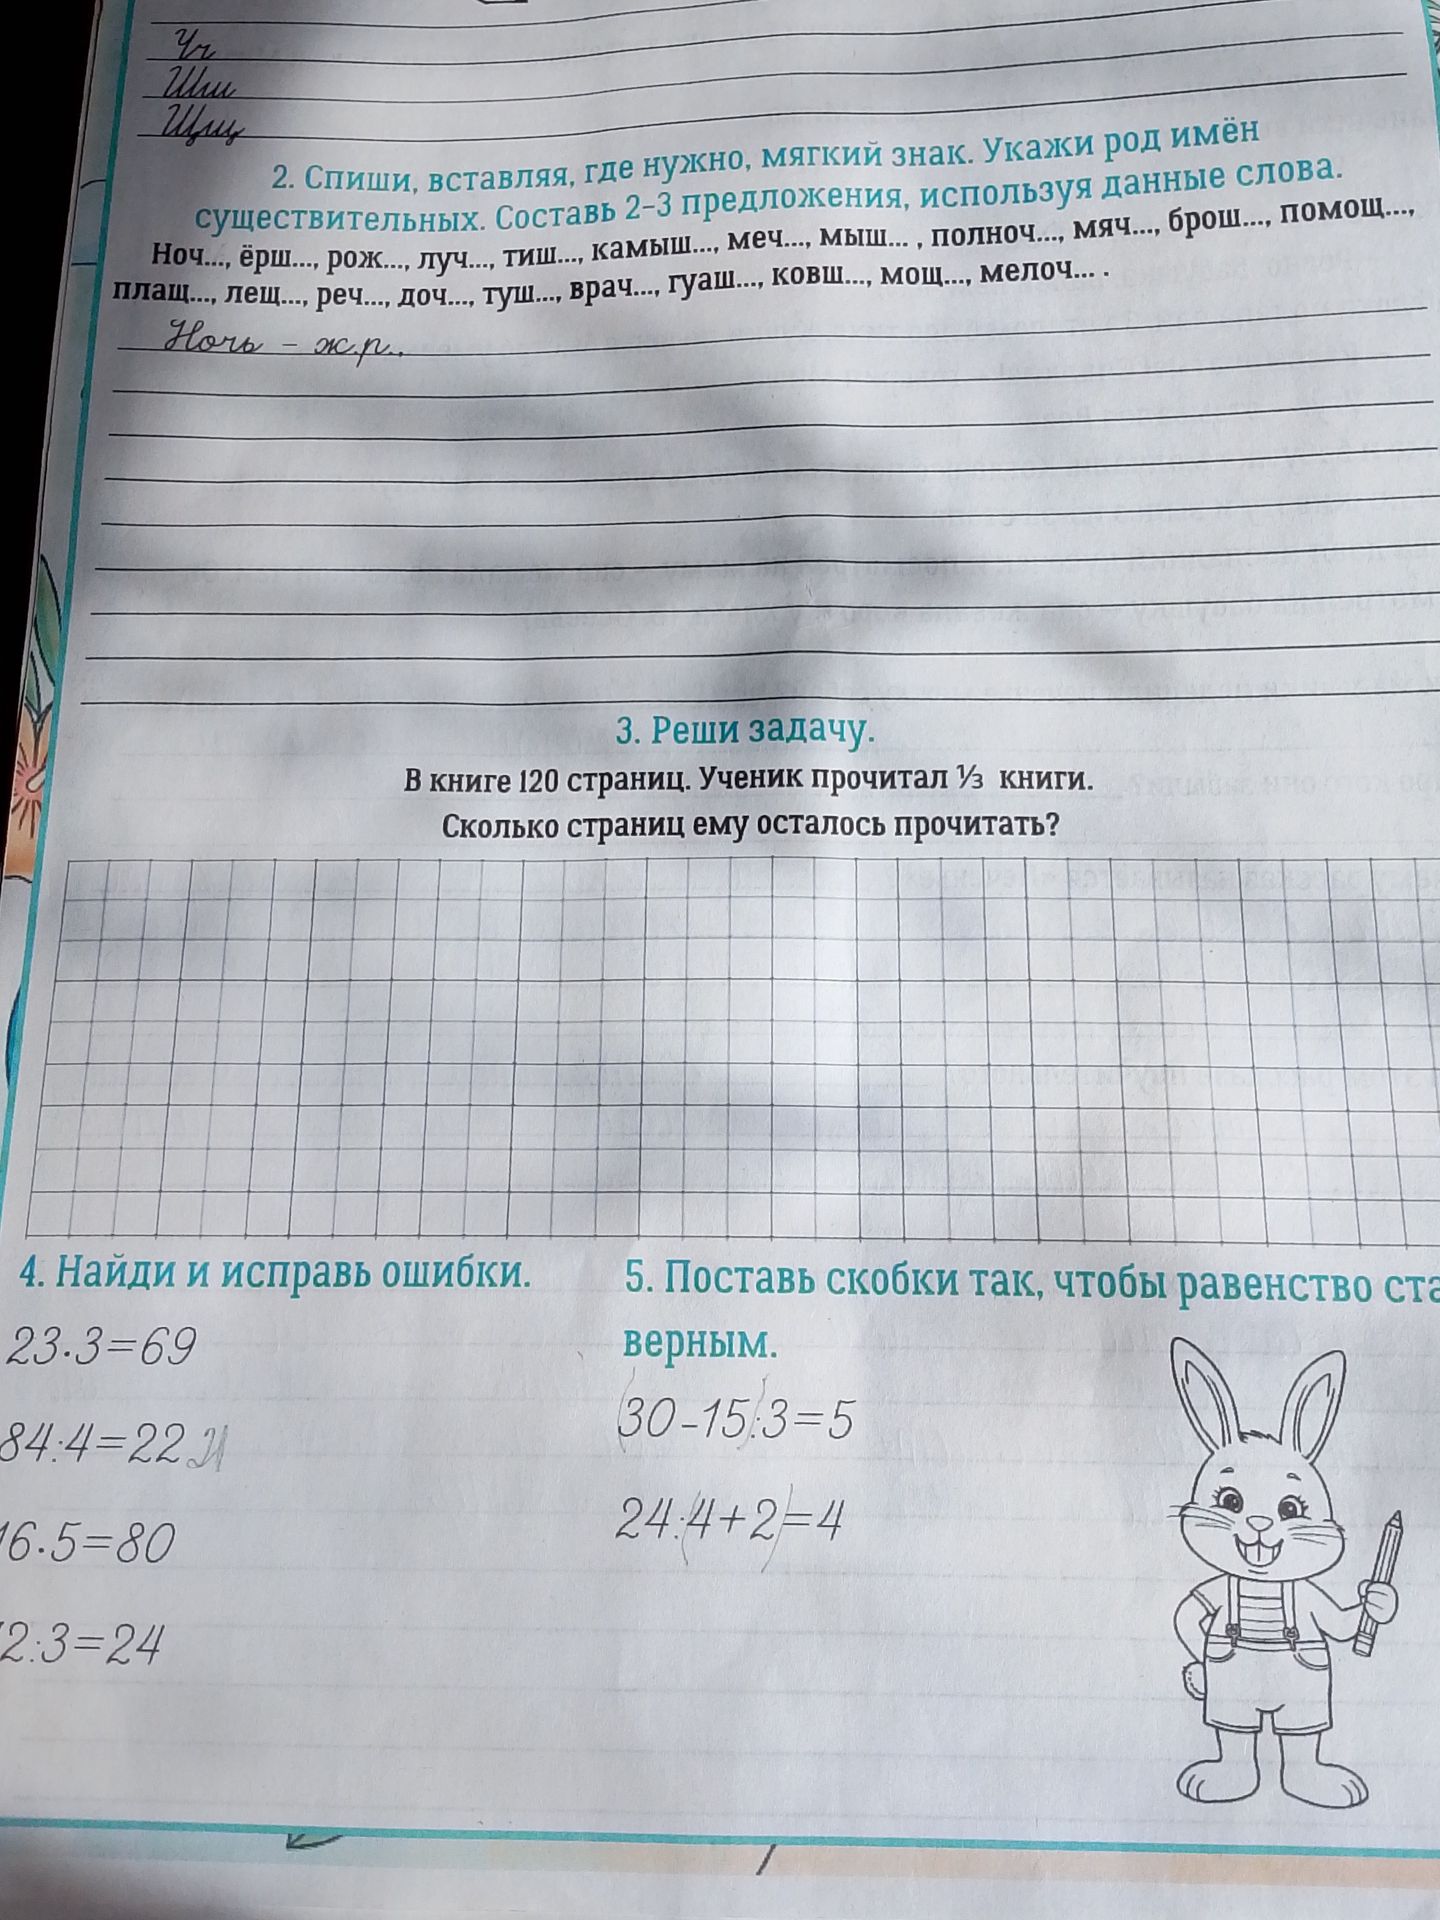 Чч
Шш
Щщ
2. Спиши, вставляя, где нужно, мягкий знак. Укажи род имён
существительных. Составь 2-3 предложения, используя данные слова.
Ноч..., ёрш..., рож..., луч..., тиш..., камыш..., меч..., мыш... , полноч..., мяч..., брош..., помощ...,
плащ..., лещ..., реч..., доч..., туш..., врач..., гуаш..., ковш..., мощ..., мелоч... .
Ночь - ж.р.,
3. Реши задачу.
В книге 120 страниц. Ученик прочитал ⅓ книги.
Сколько страниц ему осталось прочитать?
4. Найди и исправь ошибки.
23·3=69
84:4=22 21
16·5=80
2:3=24
5. Поставь скобки так, чтобы равенство ста
верным.
(30-15):3=5
24:(4+2)=4